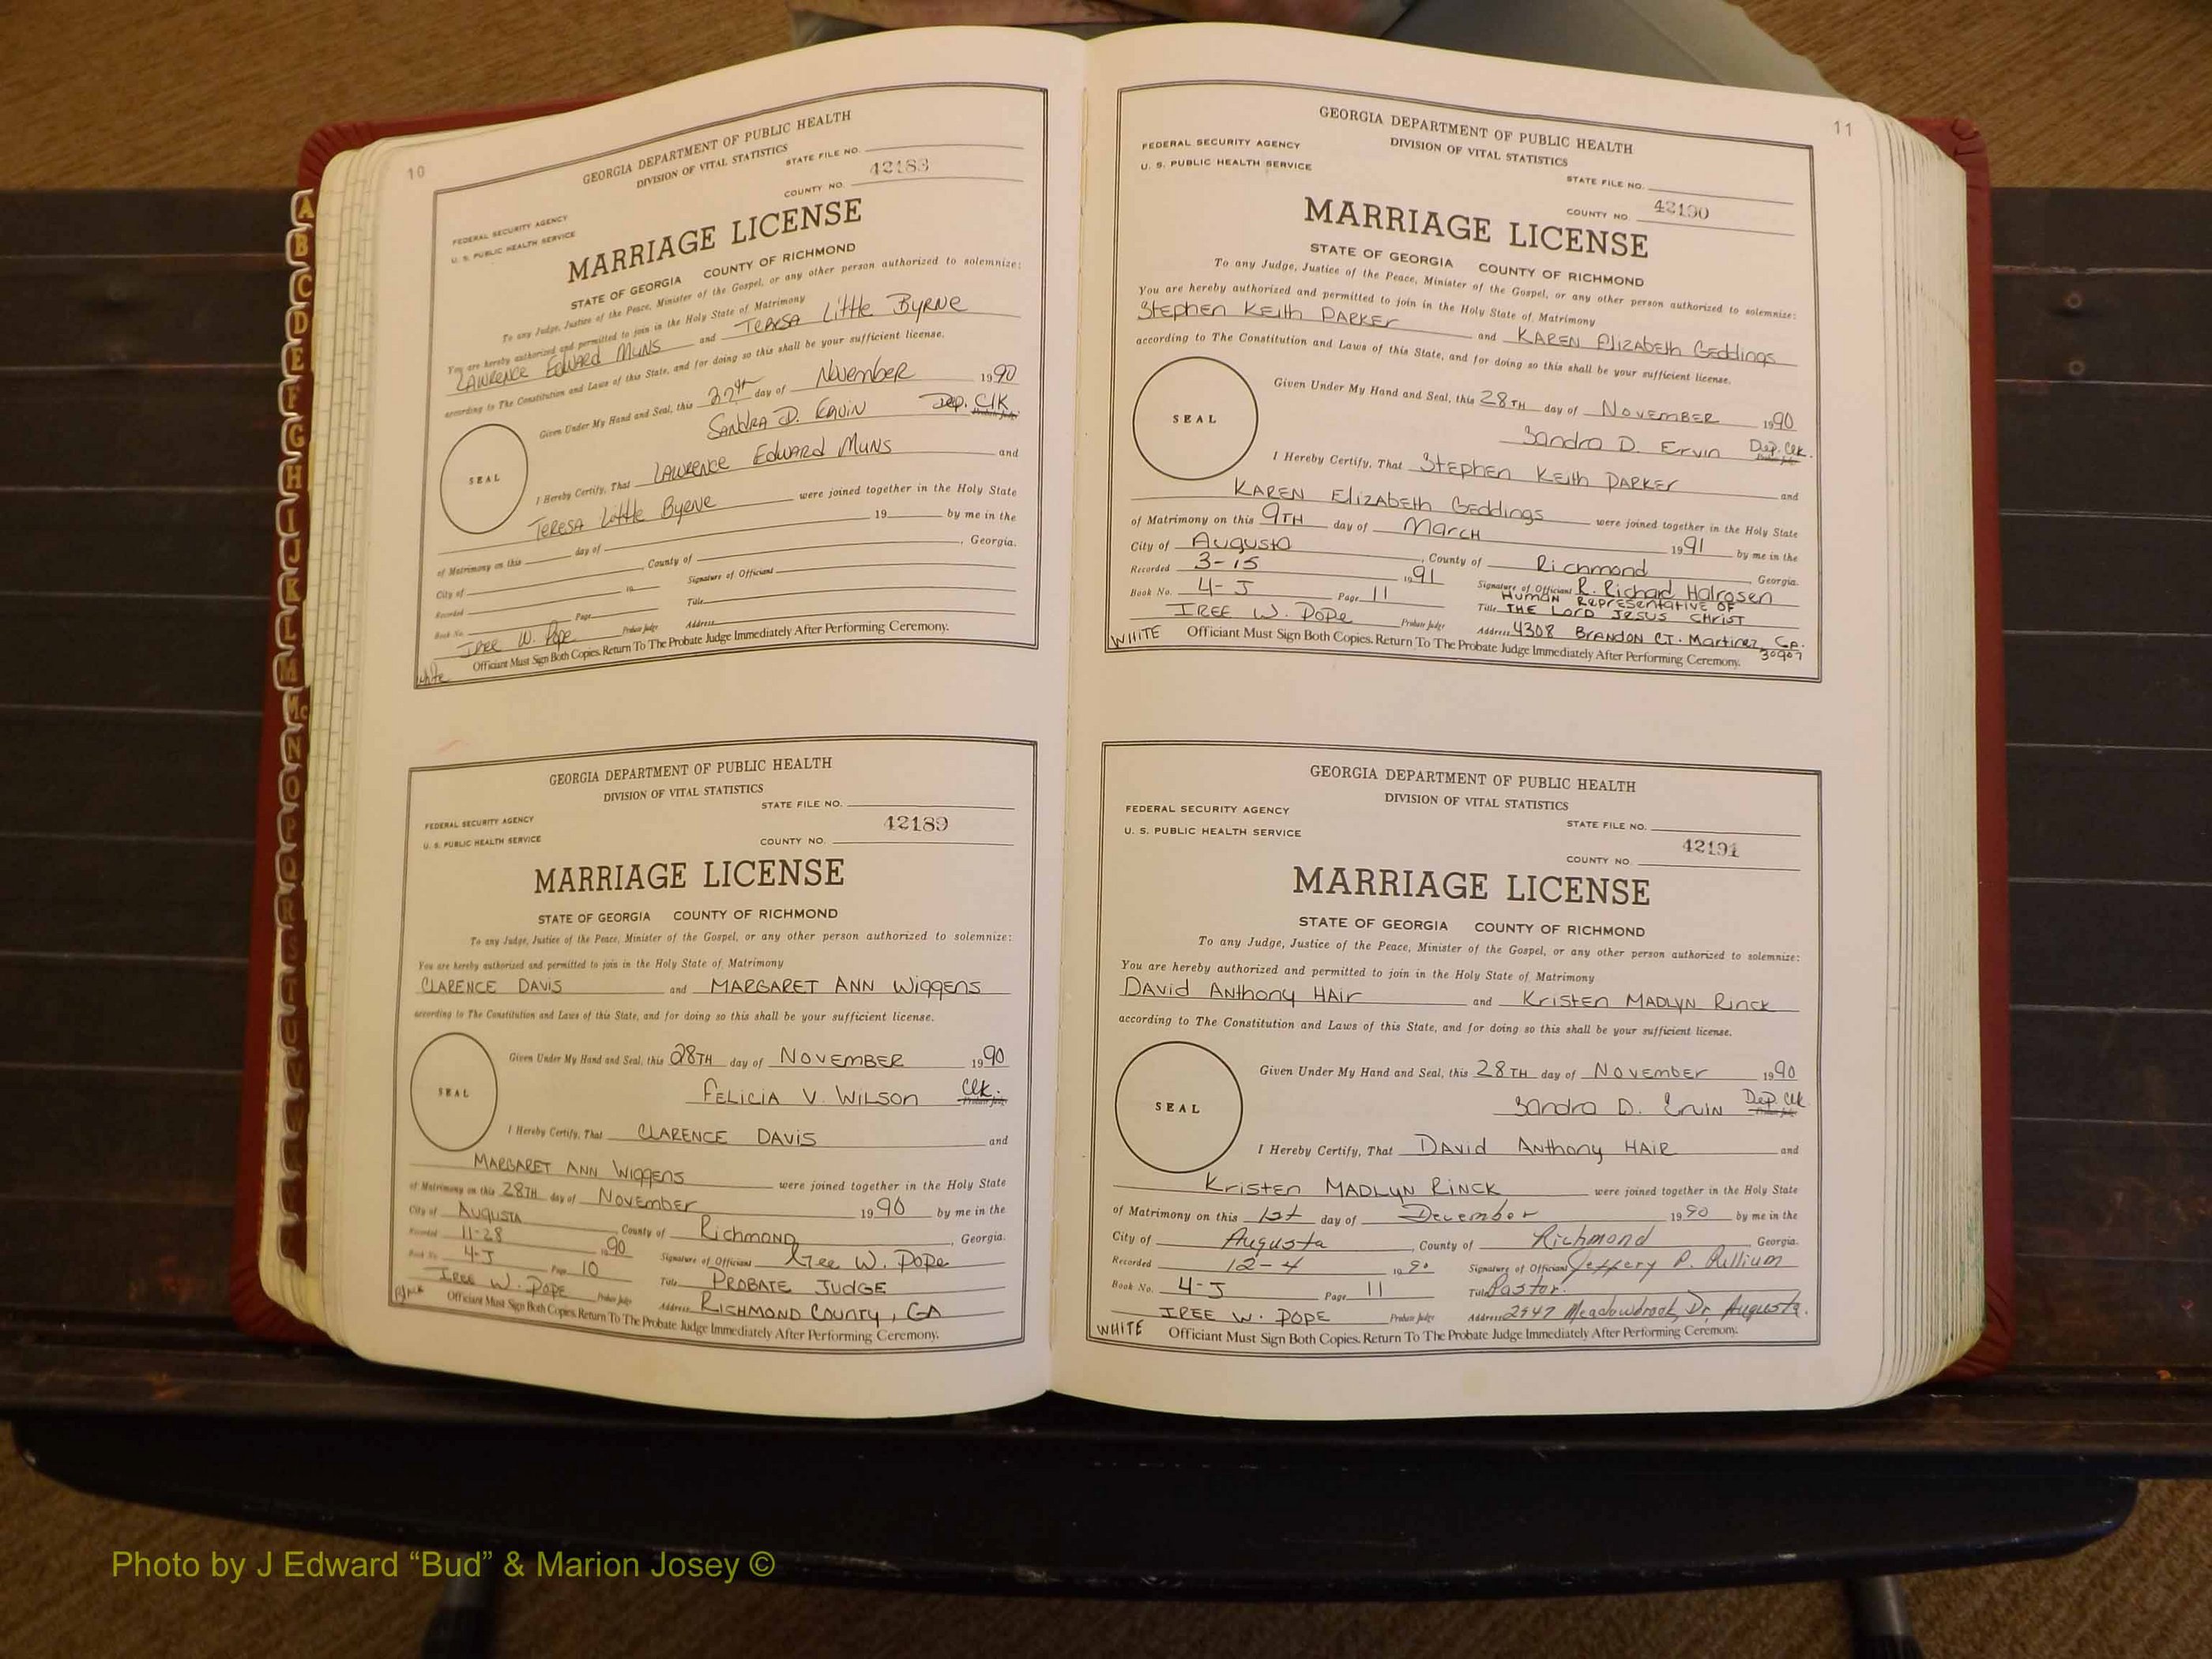 10
GEORGIA DEPARTMENT OF PUBLIC HEALTH
DIVISION OF VITAL STATISTICS
STATE FILE NO.
FEDERAL SECURITY AGENCY
U. S. PUBLIC HEALTH SERVICE
COUNTY NO. 42183
MARRIAGE LICENSE
STATE OF GEORGIA COUNTY OF RICHMOND
To any Judge, Justice of the Peace, Minister of the Gospel, or any other person authorized to solemnize:
You are hereby authorized and permitted to join in the Holy State of Matrimony
LAWRENCE EDWARD MUNS and TERESA Little BYRNE
according to The Constitution and Laws of this State, and for doing so this shall be your sufficient license.
Given Under My Hand and Seal, this 27th day of November 1990
SANDRA D. Dep. Clk
SEAL
I Hereby Certify, That LAWRENCE EDWARD MUNS and
TERESA Little Byrne were joined together in the Holy State
of Matrimony on this day of 19 by me in the
City of , County of , Georgia.
Recorded 19 Signature of Officiant
Book No. Page Title
IREE W. Pope Probate Judge Address
White Officiant Must Sign Both Copies. Return To The Probate Judge Immediately After Performing Ceremony.
GEORGIA DEPARTMENT OF PUBLIC HEALTH
DIVISION OF VITAL STATISTICS
STATE FILE NO.
FEDERAL SECURITY AGENCY
U. S. PUBLIC HEALTH SERVICE
COUNTY NO. 42189
MARRIAGE LICENSE
STATE OF GEORGIA COUNTY OF RICHMOND
To any Judge, Justice of the Peace, Minister of the Gospel, or any other person authorized to solemnize:
You are hereby authorized and permitted to join in the Holy State of Matrimony
CLARENCE DAVIS and MARGARET ANN WIGGENS
according to The Constitution and Laws of this State, and for doing so this shall be your sufficient license.
Given Under My Hand and Seal, this 28TH day of NOVEMBER 1990
FELICIA V. WILSON Clk.
SEAL
I Hereby Certify, That CLARENCE DAVIS and
MARGARET ANN WIGGENS were joined together in the Holy State
of Matrimony on this 28TH day of November 1990 by me in the
City of AUGUSTA, County of Richmond, Georgia.
Recorded 11-28 1990 Signature of Officiant Iree W. Pope
Book No. 4-J Page 10 Title PROBATE JUDGE
IREE W. POPE Probate Judge Address RICHMOND COUNTY, GA
Officiant Must Sign Both Copies. Return To The Probate Judge Immediately After Performing Ceremony.
11
GEORGIA DEPARTMENT OF PUBLIC HEALTH
DIVISION OF VITAL STATISTICS
FEDERAL SECURITY AGENCY
U. S. PUBLIC HEALTH SERVICE
STATE FILE NO.
COUNTY NO. 42190
MARRIAGE LICENSE
STATE OF GEORGIA COUNTY OF RICHMOND
To any Judge, Justice of the Peace, Minister of the Gospel, or any other person authorized to solemnize:
You are hereby authorized and permitted to join in the Holy State of Matrimony
Stephen Keith PARKER and KAREN Elizabeth Geddings
according to The Constitution and Laws of this State, and for doing so this shall be your sufficient license.
Given Under My Hand and Seal, this 28TH day of NOVEMBER 1990
Sandra D. Ervin Dep. Clk.
SEAL
I Hereby Certify, That Stephen Keith PARKER and
KAREN Elizabeth Geddings were joined together in the Holy State
of Matrimony on this 9TH day of March 1991 by me in the
City of Augusta, County of Richmond, Georgia.
Recorded 3-15 1991 Signature of Officiant R. Richard Halrosen
Book No. 4-J Page 11 Title HUMAN REPRESENTATIVE OF THE LORD JESUS CHRIST
IREE W. POPE Probate Judge Address 4308 BRANDON CT. Martinez, Ga. 30907
WHITE Officiant Must Sign Both Copies. Return To The Probate Judge Immediately After Performing Ceremony.
GEORGIA DEPARTMENT OF PUBLIC HEALTH
DIVISION OF VITAL STATISTICS
FEDERAL SECURITY AGENCY
U. S. PUBLIC HEALTH SERVICE
STATE FILE NO.
COUNTY NO. 42191
MARRIAGE LICENSE
STATE OF GEORGIA COUNTY OF RICHMOND
To any Judge, Justice of the Peace, Minister of the Gospel, or any other person authorized to solemnize:
You are hereby authorized and permitted to join in the Holy State of Matrimony
David Anthony HAir and Kristen MADLYN Rinck
according to The Constitution and Laws of this State, and for doing so this shall be your sufficient license.
Given Under My Hand and Seal, this 28TH day of November 1990
Sandra D. Ervin Dep. Clk
SEAL
I Hereby Certify, That David Anthony HAIR and
Kristen MADLYN RINCK were joined together in the Holy State
of Matrimony on this 1st day of December 1990 by me in the
City of Augusta, County of Richmond Georgia.
Recorded 12-4 1990 Signature of Officiant Jeffery P. Pullium
Book No. 4-J Page 11 Title Pastor.
IREE W. POPE Probate Judge Address 2947 Meadowbrook Dr, Augusta.
WHITE Officiant Must Sign Both Copies. Return To The Probate Judge Immediately After Performing Ceremony.
A
B
C
D
E
F
G
H
I
J
K
L
M
Mc
N
O
P
Q
R
S
T
U
V
W
Photo by J Edward “Bud” & Marion Josey ©